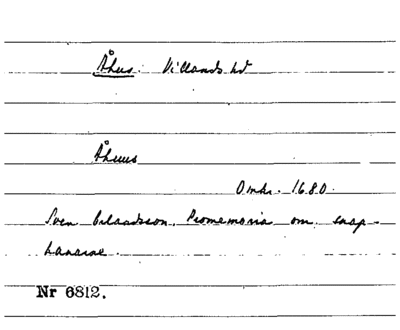 Åhus. Villands hd
Åhus
Omkr. 1680.
Sven Erlandsson, Promemoria om snap-
hanarne.
Nr 6812.